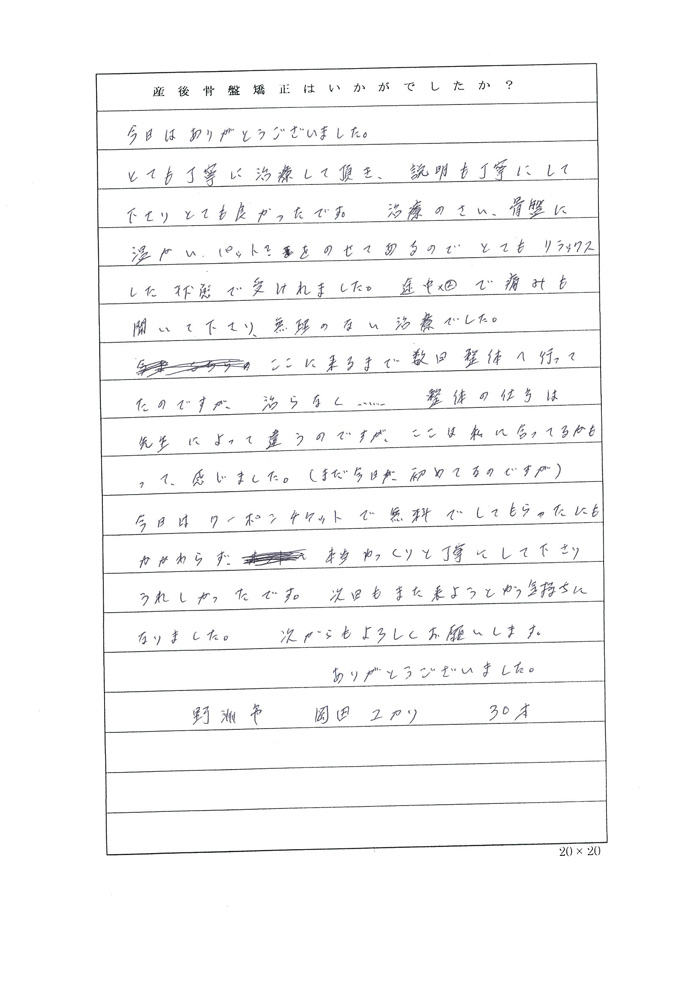 産後骨盤矯正はいかがでしたか？
今日はありがとうございました。
とても丁寧に治療して頂き、説明も丁寧にして
下さりとても良かったです。 治療のさい、骨盤に
温かい、パットをのせてあるので とても リラックス
した状態で受けれました。 途中 で痛みも
聞いて下さり、無理のない治療でした。
ここに来るまで数回整体へ行って
たのですが、治らなく…… 整体の仕方は
先生によって違うのですが、ここは私に合ってるかも
って、感じました。（まだ今日が、初めてるのですが）
今日はクーポンチケットで無料でしてもらったにも
かかわらず、 ゆっくりと丁寧にして下さり
うれしかったです。 次回もまた来ようとかう気持ちに
なりました。 次からもよろしくお願いします。
ありがとうございました。
野洲市 岡田ユカリ 30才
20×20